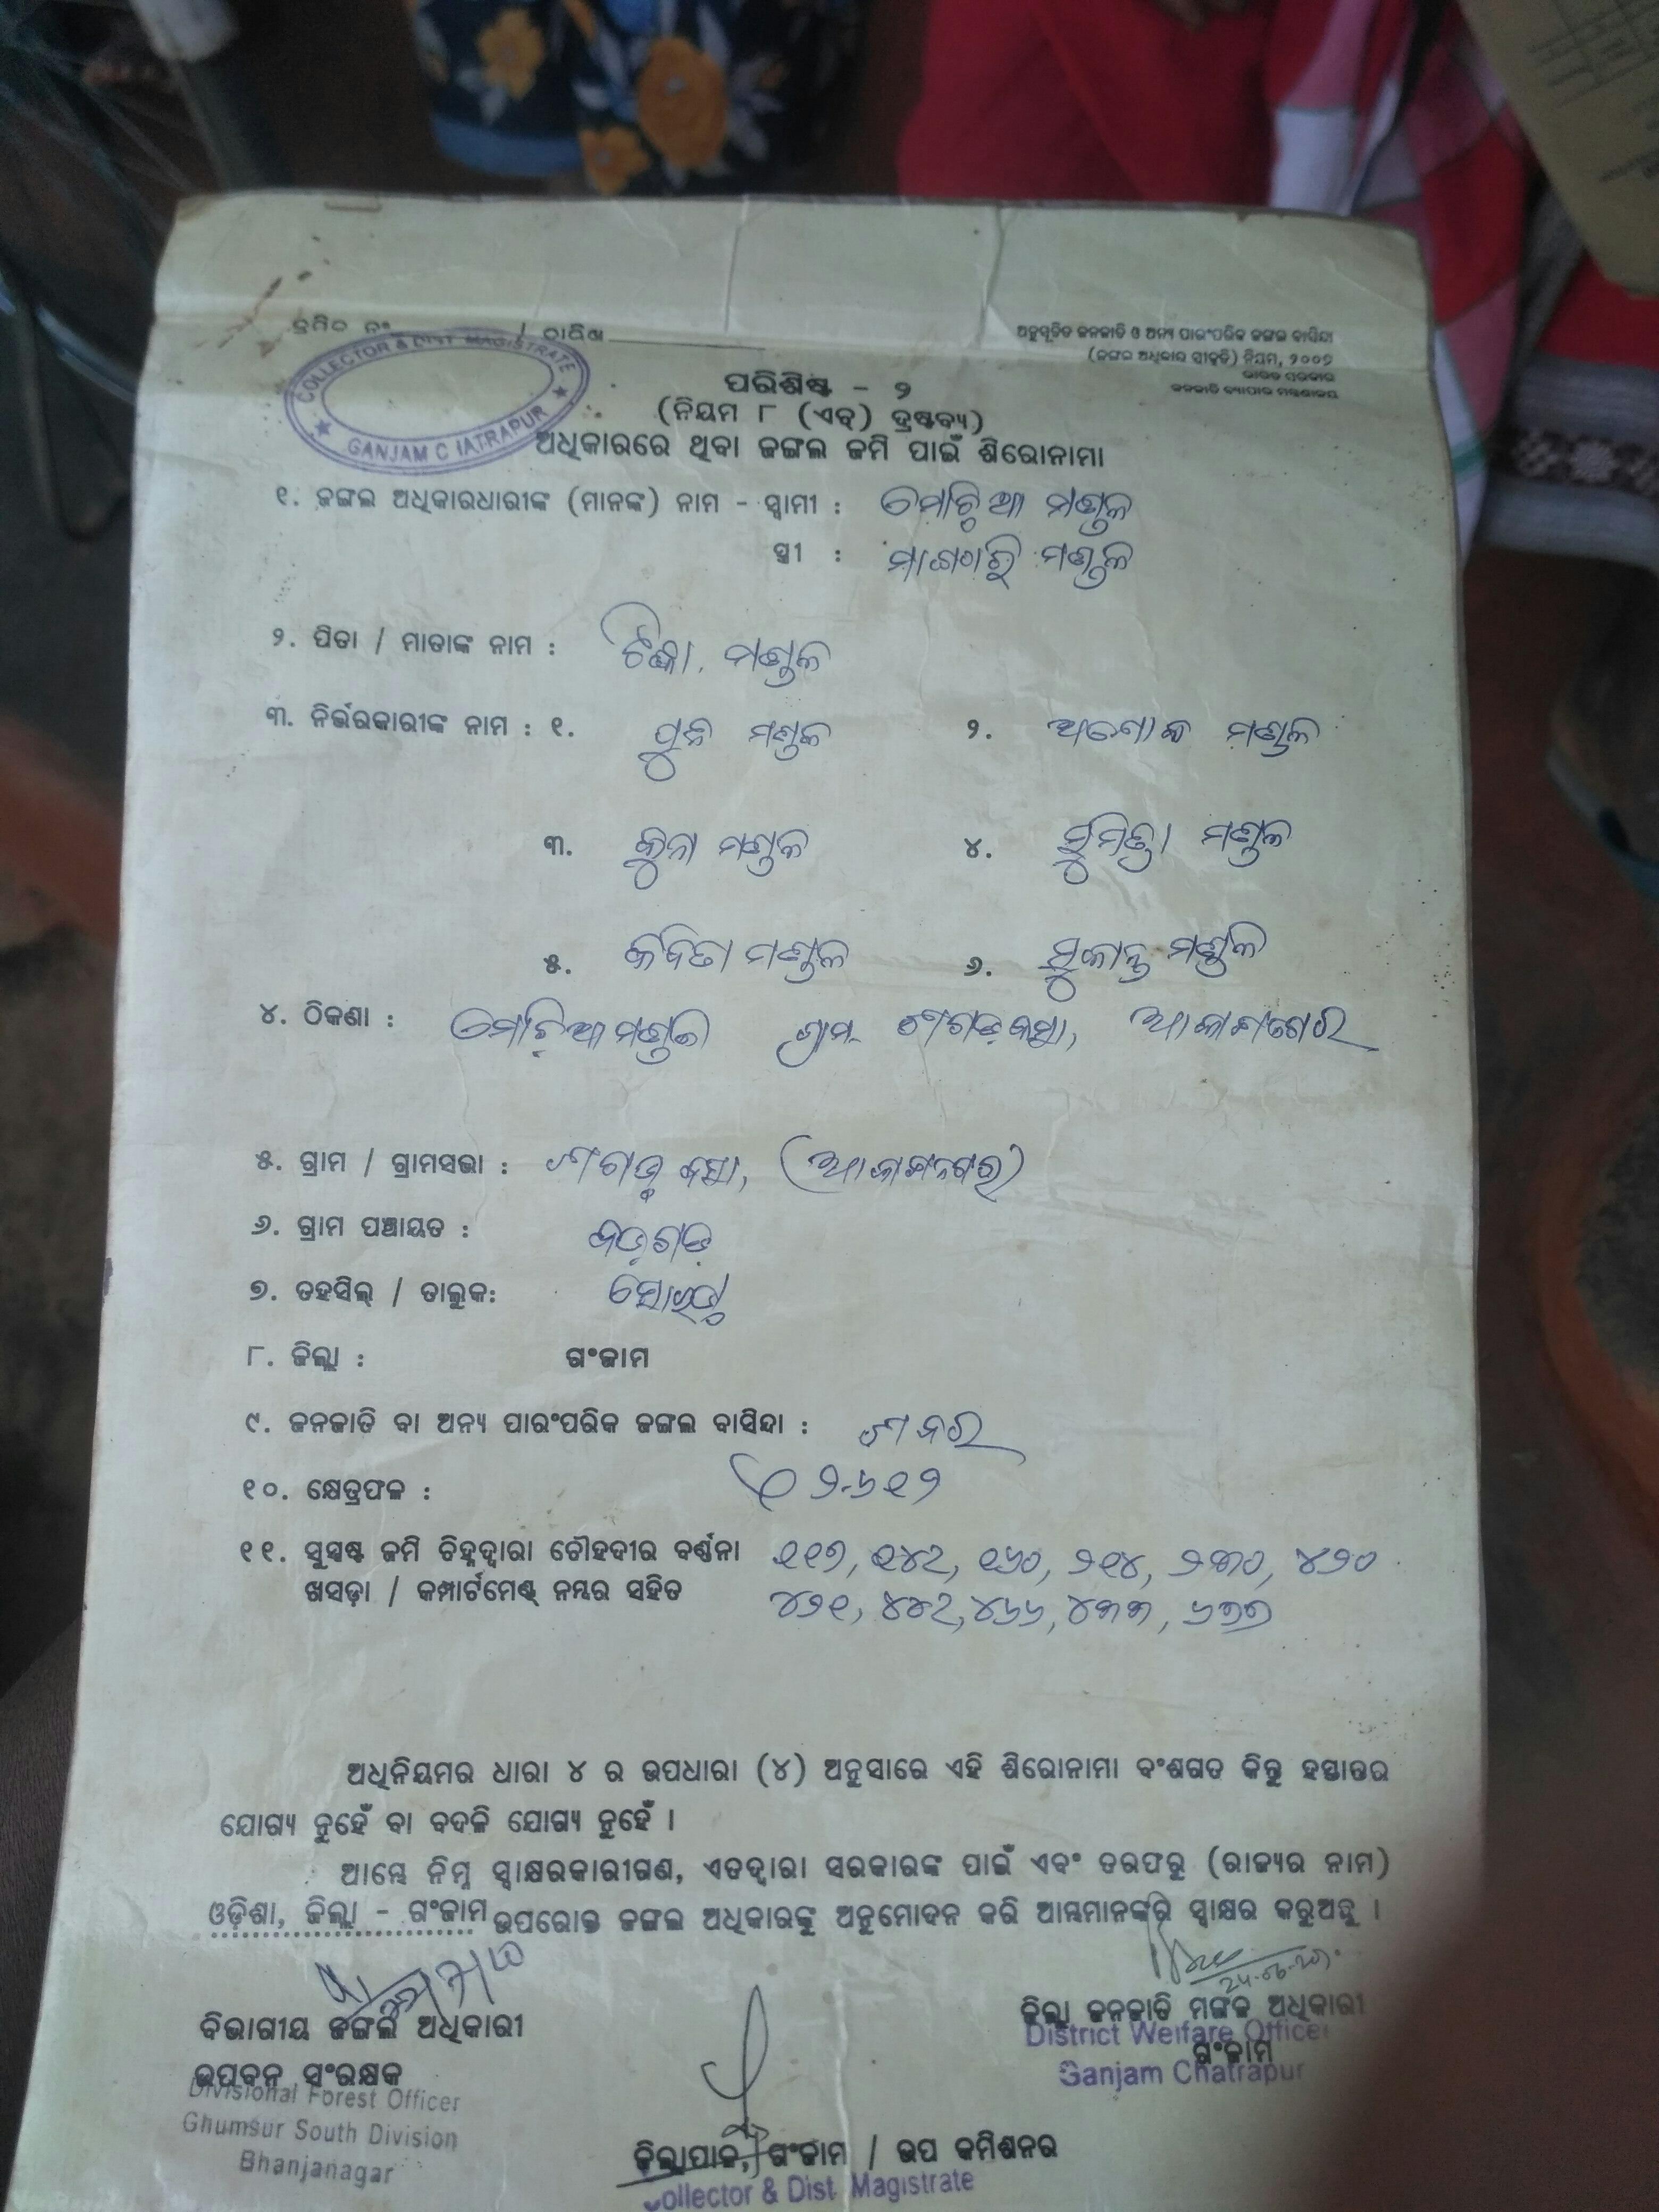 କ୍ରମିକ ନଂ / ତାରିଖ
ଅନୁସୂଚିତ ଜନଜାତି ଓ ଅନ୍ୟ ପାରଂପରିକ ଜଙ୍ଗଲ ବାସିନ୍ଦା
(ଜଙ୍ଗଲ ଅଧିକାର ସ୍ୱୀକୃତି) ନିୟମ, ୨୦୦୭
ଭାରତ ସରକାର
ଜନଜାତି ବ୍ୟାପାର ମନ୍ତ୍ରଣାଳୟ
COLLECTOR & DIST MAGISTRATE
GANJAM C IATRAPUR
ପରିଶିଷ୍ଟ - ୨
(ନିୟମ ୮ (ଏଚ୍) ଦ୍ରଷ୍ଟବ୍ୟ)
ଅଧିକାରରେ ଥିବା ଜଙ୍ଗଲ ଜମି ପାଇଁ ଶିରୋନାମା
୧. ଜଙ୍ଗଲ ଅଧିକାରଧାରୀଙ୍କ (ମାନଙ୍କ) ନାମ - ସ୍ୱାମୀ : ମଣ୍ଡଳ
ସ୍ତ୍ରୀ : ମଣ୍ଡଳ
୨. ପିତା / ମାତାଙ୍କ ନାମ : ମଣ୍ଡଳ
୩. ନିର୍ଭରକାରୀଙ୍କ ନାମ : ୧. ମଣ୍ଡଳ ୨. ମଣ୍ଡଳ
୩. କୁନା ମଣ୍ଡଳ ୪. ସୁମିତ୍ରା ମଣ୍ଡଳ
୫. କବିତା ମଣ୍ଡଳ ୬. ସୁକାନ୍ତ ମଣ୍ଡଳ
୪. ଠିକଣା : ଗ୍ରାମ
୫. ଗ୍ରାମ / ଗ୍ରାମସଭା :
୬. ଗ୍ରାମ ପଞ୍ଚାୟତ : ବଡ଼ଗଡ଼
୭. ତହସିଲ୍ / ତାଲୁକ: ସୋରଡ଼ା
୮. ଜିଲ୍ଲା : ଗଂଜାମ
୯. ଜନଜାତି ବା ଅନ୍ୟ ପାରଂପରିକ ଜଙ୍ଗଲ ବାସିନ୍ଦା : ଶବର
୧୦. କ୍ଷେତ୍ରଫଳ : ୨.୬୧୨
୧୧. ସୁସ୍ପଷ୍ଟ ଜମି ଚିହ୍ନଦ୍ୱାରା ଚୌହଦୀର ବର୍ଣ୍ଣନା ୧୧୭, ୧୪୯, ୧୬୦, ୨୧୪, ୨୩୦, ୪୨୦
ଖସଡ଼ା / କମ୍ପାର୍ଟମେଣ୍ଟ୍ ନମ୍ବର ସହିତ ୪୨୧, ୪୪୯, ୪୬୬, ୪୩୩, ୬୭୭
ଅଧିନିୟମର ଧାରା ୪ ର ଉପଧାରା (୪) ଅନୁସାରେ ଏହି ଶିରୋନାମା ବଂଶଗତ କିନ୍ତୁ ହସ୍ତାନ୍ତର
ଯୋଗ୍ୟ ନୁହେଁ ବା ବଦଳି ଯୋଗ୍ୟ ନୁହେଁ ।
ଆମ୍ଭେ ନିମ୍ନ ସ୍ୱାକ୍ଷରକାରୀଗଣ, ଏତଦ୍ୱାରା ସରକାରଙ୍କ ପାଇଁ ଏବଂ ତରଫରୁ (ରାଜ୍ୟର ନାମ)
ଓଡ଼ିଶା, ଜିଲ୍ଲା - ଗଂଜାମ ଉପରୋକ୍ତ ଜଙ୍ଗଲ ଅଧିକାରଙ୍କୁ ଅନୁମୋଦନ କରି ଆମ୍ଭମାନଙ୍କରି ସ୍ୱାକ୍ଷର କରୁଅଛୁ ।
ବିଭାଗୀୟ ଜଙ୍ଗଲ ଅଧିକାରୀ
ଉପବନ ସଂରକ୍ଷକ
Divisional Forest Officer
Ghumsur South Division
Bhanjanagar
ଜିଲ୍ଲା ଜନଜାତି ମଙ୍ଗଳ ଅଧିକାରୀ
District Welfare Officer
ଗଂଜାମ
Ganjam Chatrapur
ଜିଲ୍ଲାପାଳ, ଗଂଜାମ / ଉପ କମିଶନର
Collector & Dist. Magistrate